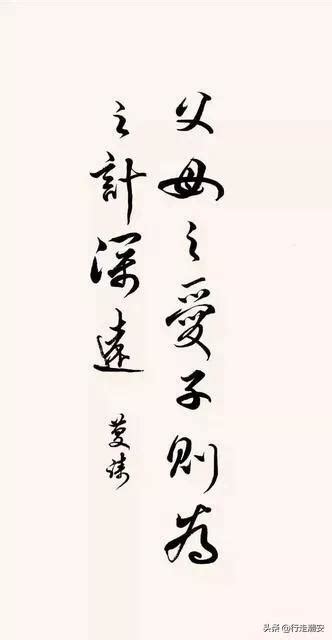 父母之愛子則為
之計深遠
头条@行走潮安